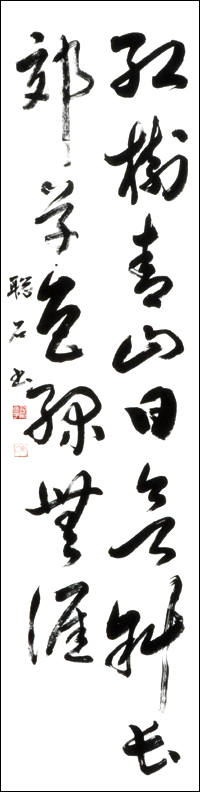 紅樹青山日欲斜長
郊草色綠無涯
聡石書